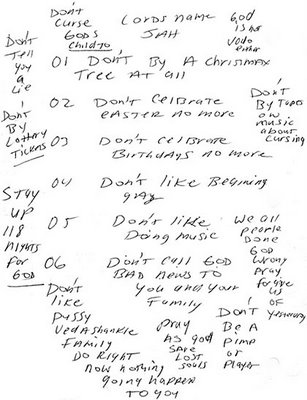 Don't
Curse
GODS
Child to
Lords name
JAH
God
is not
Vodo
either
Don't
Tell
you
a
Lie
I
Don't
By
Lottery
Tickets
STAY
UP
118
Nights
for
GOD
01 Don't By A Chrismax
Tree AT all
02 Don't Celbrate
EASTER no more
03 Don't Celbrate
Birthdays no more
04 Don't like Begining
gray
05 Don't like
Doing music
06 Don't call GOD
BAD news TO
You and your
Family
Don't
By Tapes
or
music
about
cursing
We all
people
Done
GOD
wrong
pray
forgive
us
OF
yesterday
Don't
like
pussy
Vedashankle
Family
DO Right
now nothing
going happen
TO YOU
Pray
AS god
SAVE
LOST
souls
Don't
Be A
pimp
or
Player